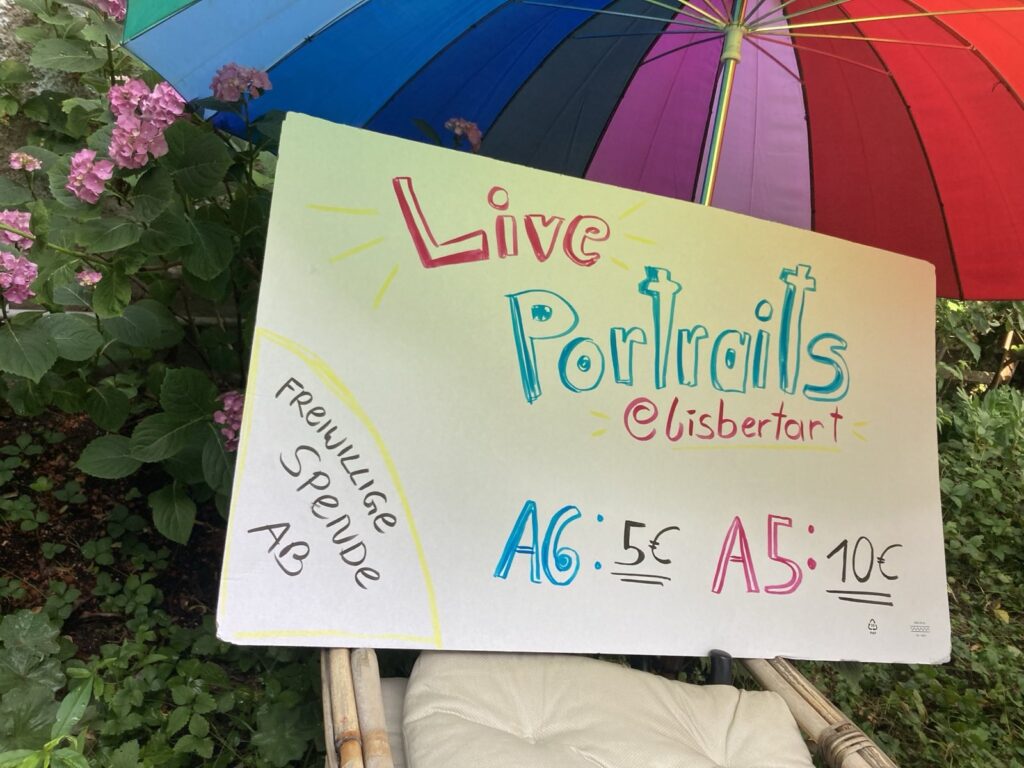 Live
Portraits
@lisbertart
FREIWILLIGE
SPENDE
AB
A6: 5€ A5: 10€